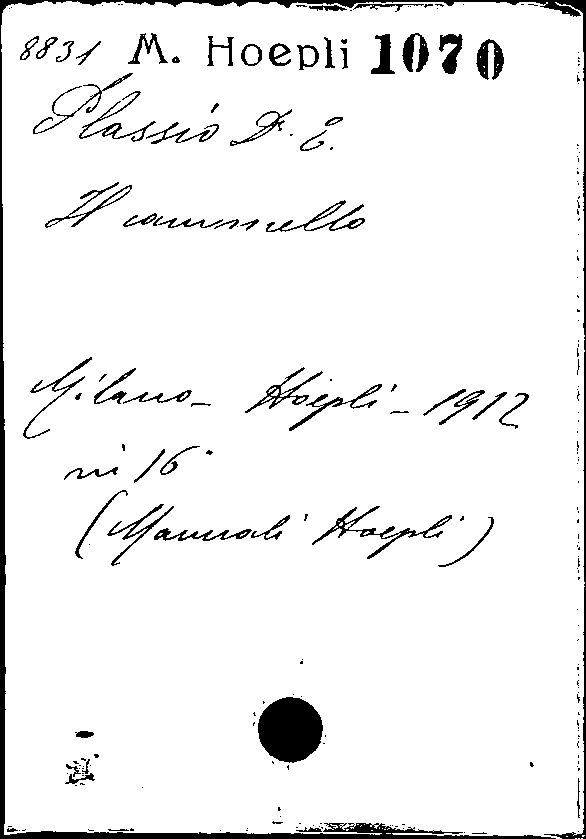 8831 M. Hoepli 1070
Plassio D.r E.
Il cammello
Milano - Hoepli - 1912
in 16°
(Manuali Hoepli)